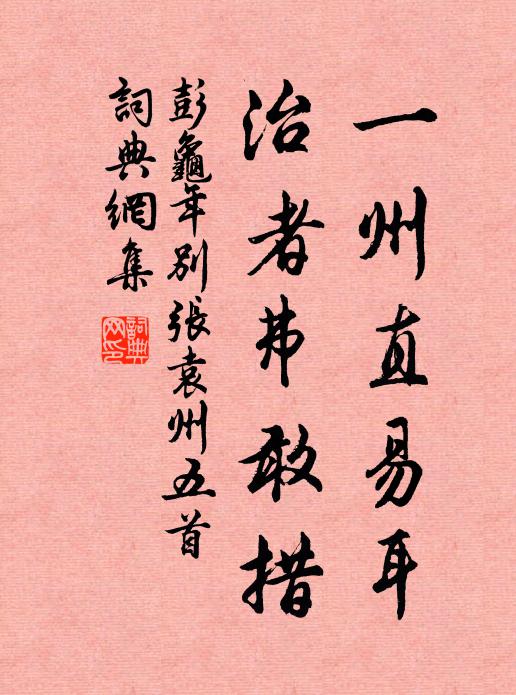 一州直易耳
治者弗敢措
彭龜年別張袁州五首
詞典網集
詞典網印